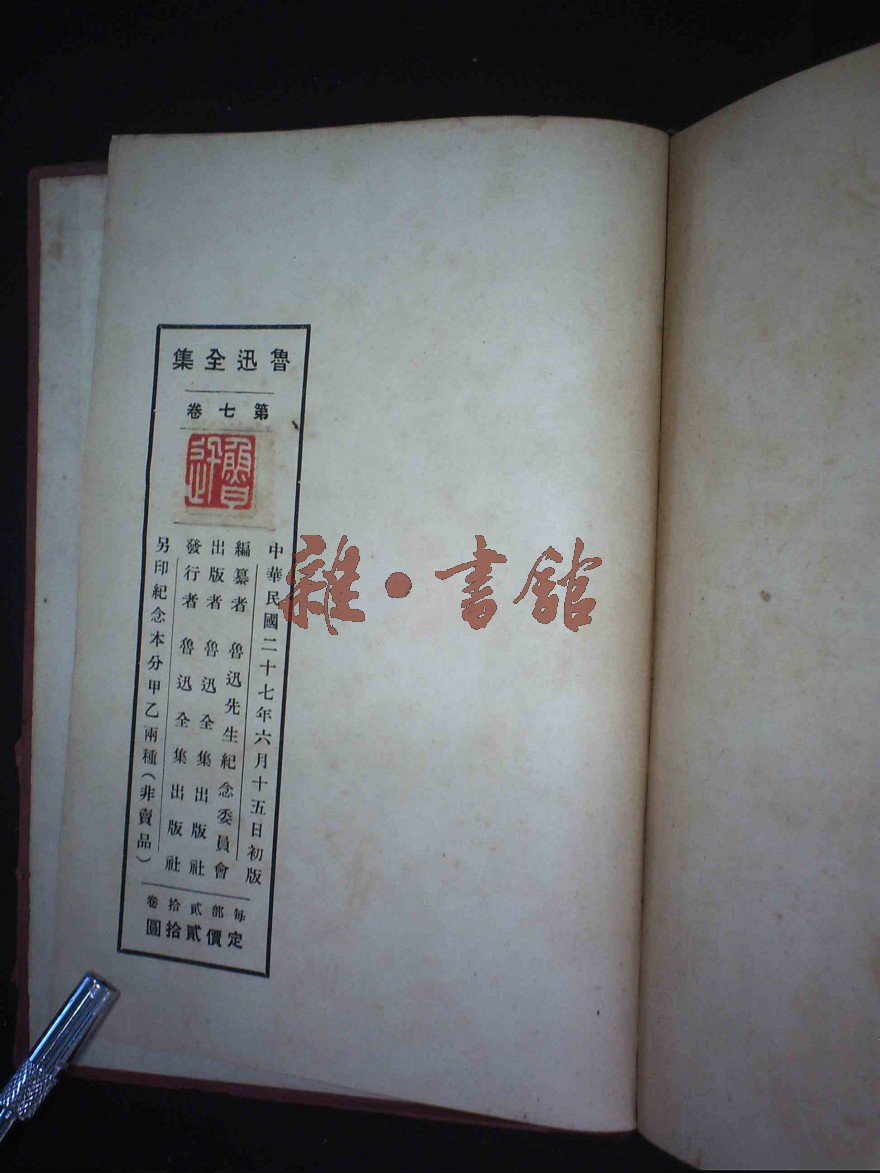 魯迅全集
第七卷
魯迅
中華民國二十七年六月十五日初版
編纂者 魯迅先生紀念委員會
出版者 魯迅全集出版社
發行者 魯迅全集出版社
另印紀念本分甲乙兩種(非賣品)
每部貳拾卷
定價貳拾圓
雜·書館